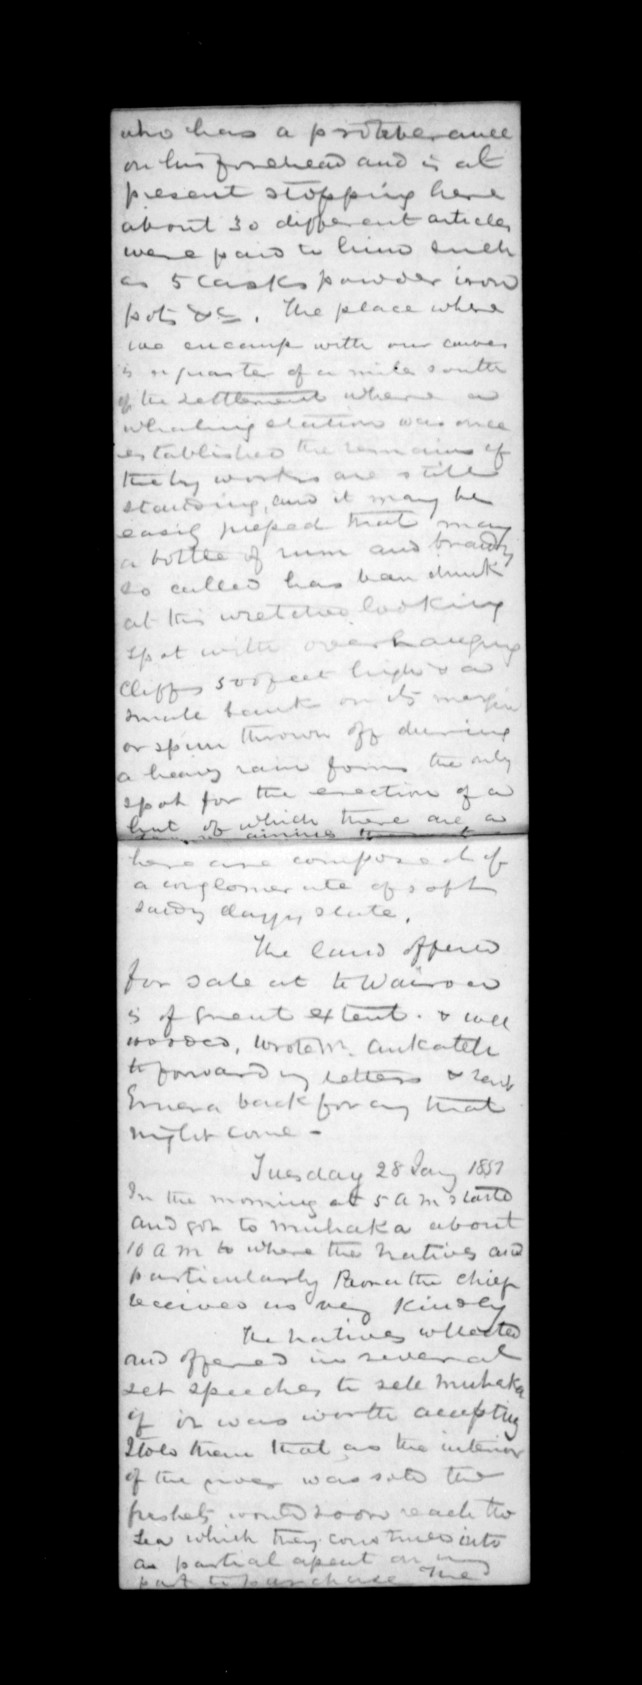 who has a protuberance
on his forehead and is at
present stopping here
about 30 different articles
were paid to him such
as 5 casks powder iron
pots &c. The place where
we encamp with our canoes
is a quarter of a mile south
of the settlement where a
whaling station was once
established the remains of
the try works are still
standing, and it may be
easily that many
a bottle of rum and brandy
so called has been drunk
at this wretched looking
spot with overhanging
Cliffs 500 feet high & a
small bank on its margin
or spur thrown off during
a heavy rain forms the only
spot for the erection of a
hut of which there are a
here are composed of
a conglomerate of soft
sandy clayey slate.
The land offered
for sale at te Wairoa
is of great extent. & well
wooded, wrote Mr.
to forward my letters & sent
back for any that
might come -
Tuesday 28 Jany 1851
In the morning at 5 am started
and got to Muhaka about
10 am to where the natives and
particularly the chief
received us very kindly
The natives collected
and offered in several
set speeches to sell Muhaka
if it was worth accepting
I told them that as the interior
of the river was sold the
freshets would soon reach the
sea which they construed into
a partial assent on my
part to purchase. The